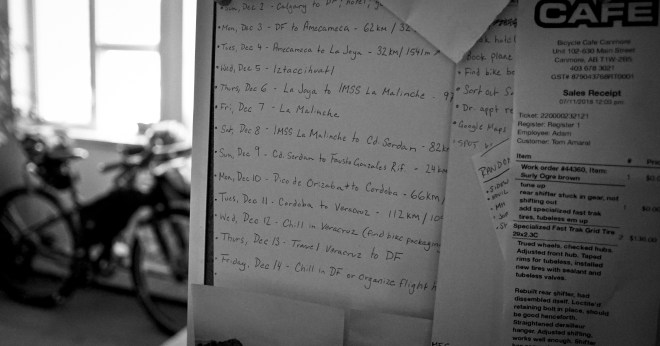 Sun, Dec 2 - Calgary to DF, hotel,
Mon, Dec 3 - DF to Amecameca - 62km / 32
Tues, Dec 4 - Amecameca to La Joya - 32km / 1541m
Wed, Dec 5 - Iztaccihuatl
Thurs, Dec 6 - La Joya to IMSS La Malinche - 97
Fri, Dec 7 - La Malinche
Sat, Dec 8 - IMSS La Malinche to Cd. Serdan - 82k
Sun, Dec 9 - Cd. Serdan to Fausto Gonzales Rif. - 24km
Mon, Dec 10 - Pico de Orizaba to Cordoba - 66km/
Tues, Dec 11 - Cordoba to Veracruz - 112km / 10
Wed, Dec 12 - Chill in Veracruz (find bike packaging
Thurs, Dec 13 - Travel Veracruz to DF
Friday, Dec 14 - Chill in DF or organize flight h
hotel
Book plane
Find bike bo
Sort out So
Dr. appt re
Google Maps
SPOT
RANDO
CAFE
Bicycle Cafe Canmore
Unit 102-630 Main Street
Canmore, AB T1W-2B5
403 678 3027
GST# 879643768RT0001
Sales Receipt
07/11/2018 12:03 pm
Ticket: 220000232121
Register: Register 1
Employee: Adam
Customer: Tom Amand
Item # Pri
Work order #44360, Item
Surly Ogre brown 1 $0.0
tune up
rear shifter stuck in gear, not
shifting out 1 $0.00
add specialized fast trak
tires, tubeless em up
Specialized Fast Trak Grid Tire
29x2.3C 2 $130.00
Trued wheels, checked hubs.
Adjusted front hub. Taped
rims for tubeless, installed
new tires with sealant and
tubeless valves.
Rebuilt rear shifter, had
dissembled itself. Loctite'd
retaining bolt in place, should
be good henceforth.
Straightened derailleur
hanger. Adjusted shifting,
works well enough. Shifter